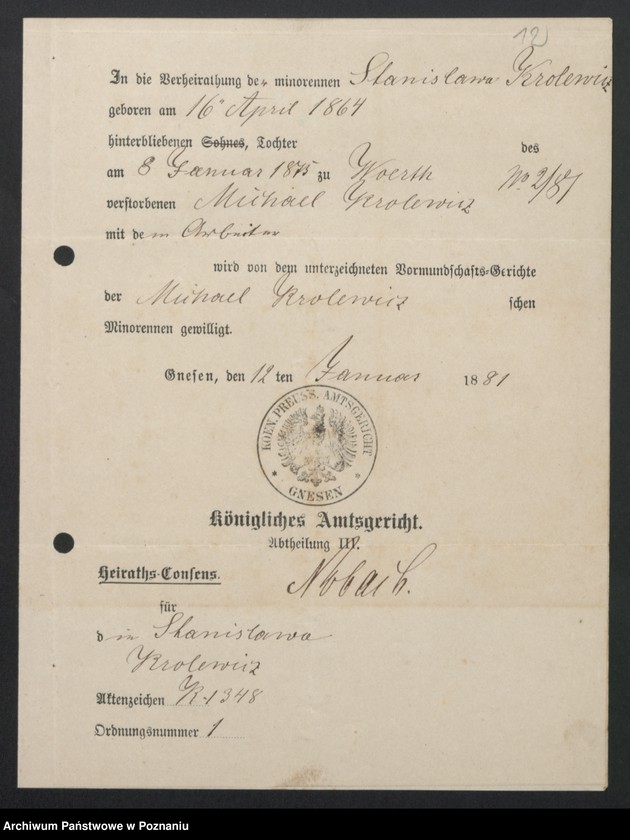 12
In die Verheirathung der minorennen Stanislawa Krolewicz
geboren am 16 April 1864
hinterbliebenen Sohnes, Tochter des
am 8 Januar 1875 zu Woerth No 2/81
verstorbenen Michael Krolewicz
mit dem Arbeiter
wird von dem unterzeichneten Vormundschafts-Gerichte
der Michael Krolewicz schen
Minorennen gewilligt.
Gnesen, den 12 ten Januar 1881
KOEN. PREUSS. AMTSGERICHT
* GNESEN *
Königliches Amtsgericht.
Abtheilung III.
Heiraths-Consens.
für
die Stanislawa
Krolewicz
Aktenzeichen K. 1348
Ordnungsnummer 1
Archiwum Państwowe w Poznaniu